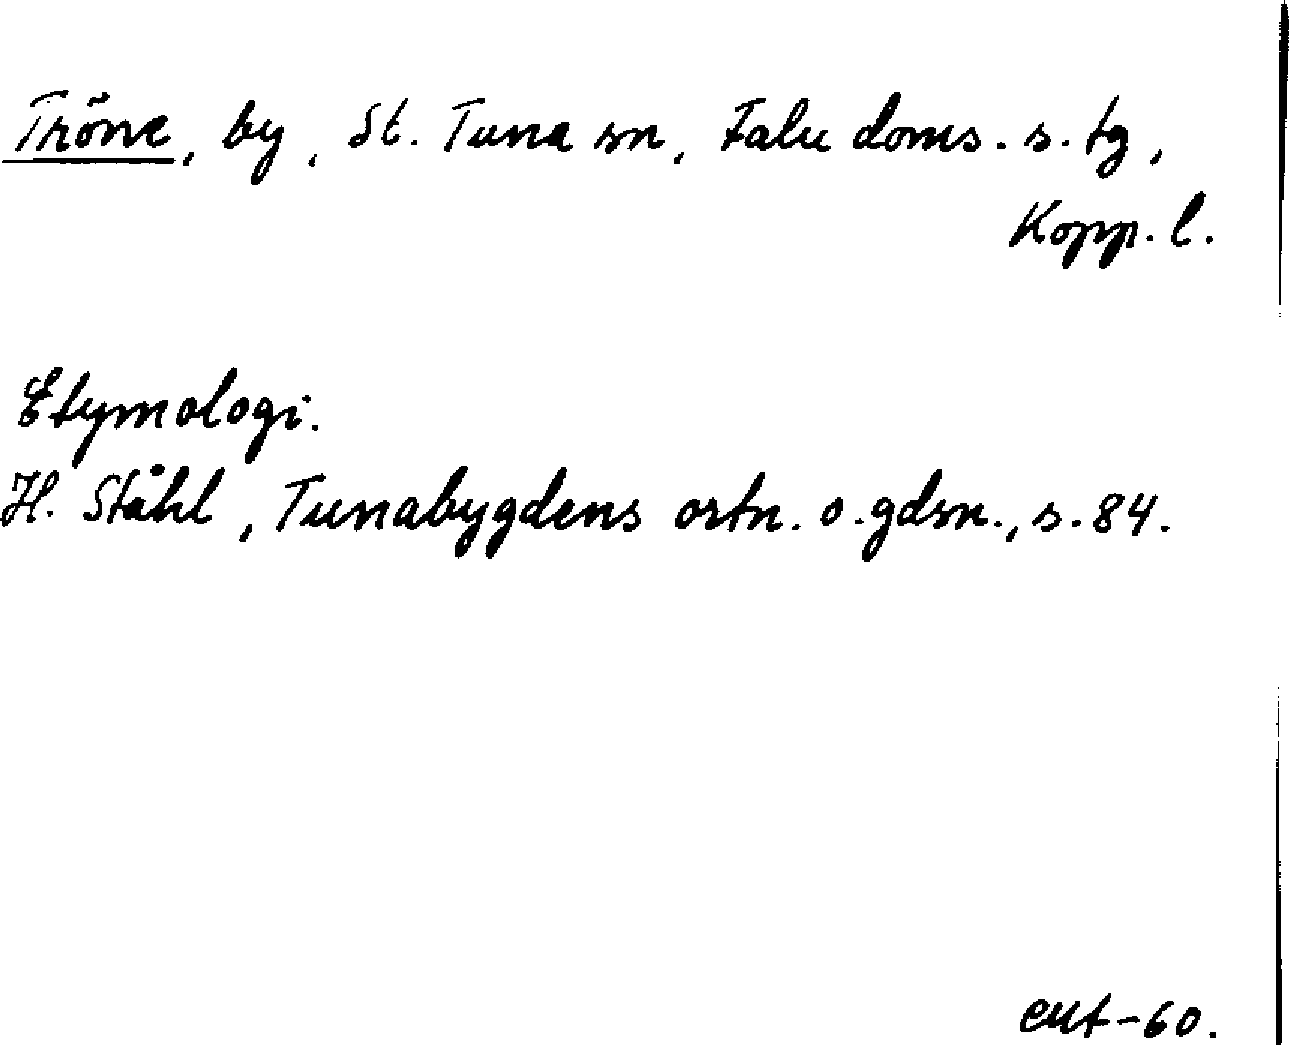 Tröne, by, St. Tuna sn, Falu doms. s. tg,
Kopp. l.
Etymologi.
H. Ståhl, Tunabygdens ortn. o. gdsn., s. 84.
-60.